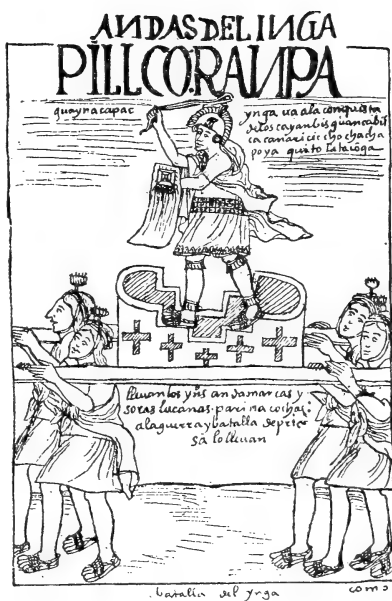 ANDAS DEL INGA
PILLCORANPA
guaynacapac
ynga ua a la conquista
de los cayanbis guancabil
ca canari cicho chacha
poya quito lataconga
lleuan los yns andamarcas y
soras lucanas parinacochas
a la guerra y batalla de prie
sa lo lleuan
batalla del ynga
como